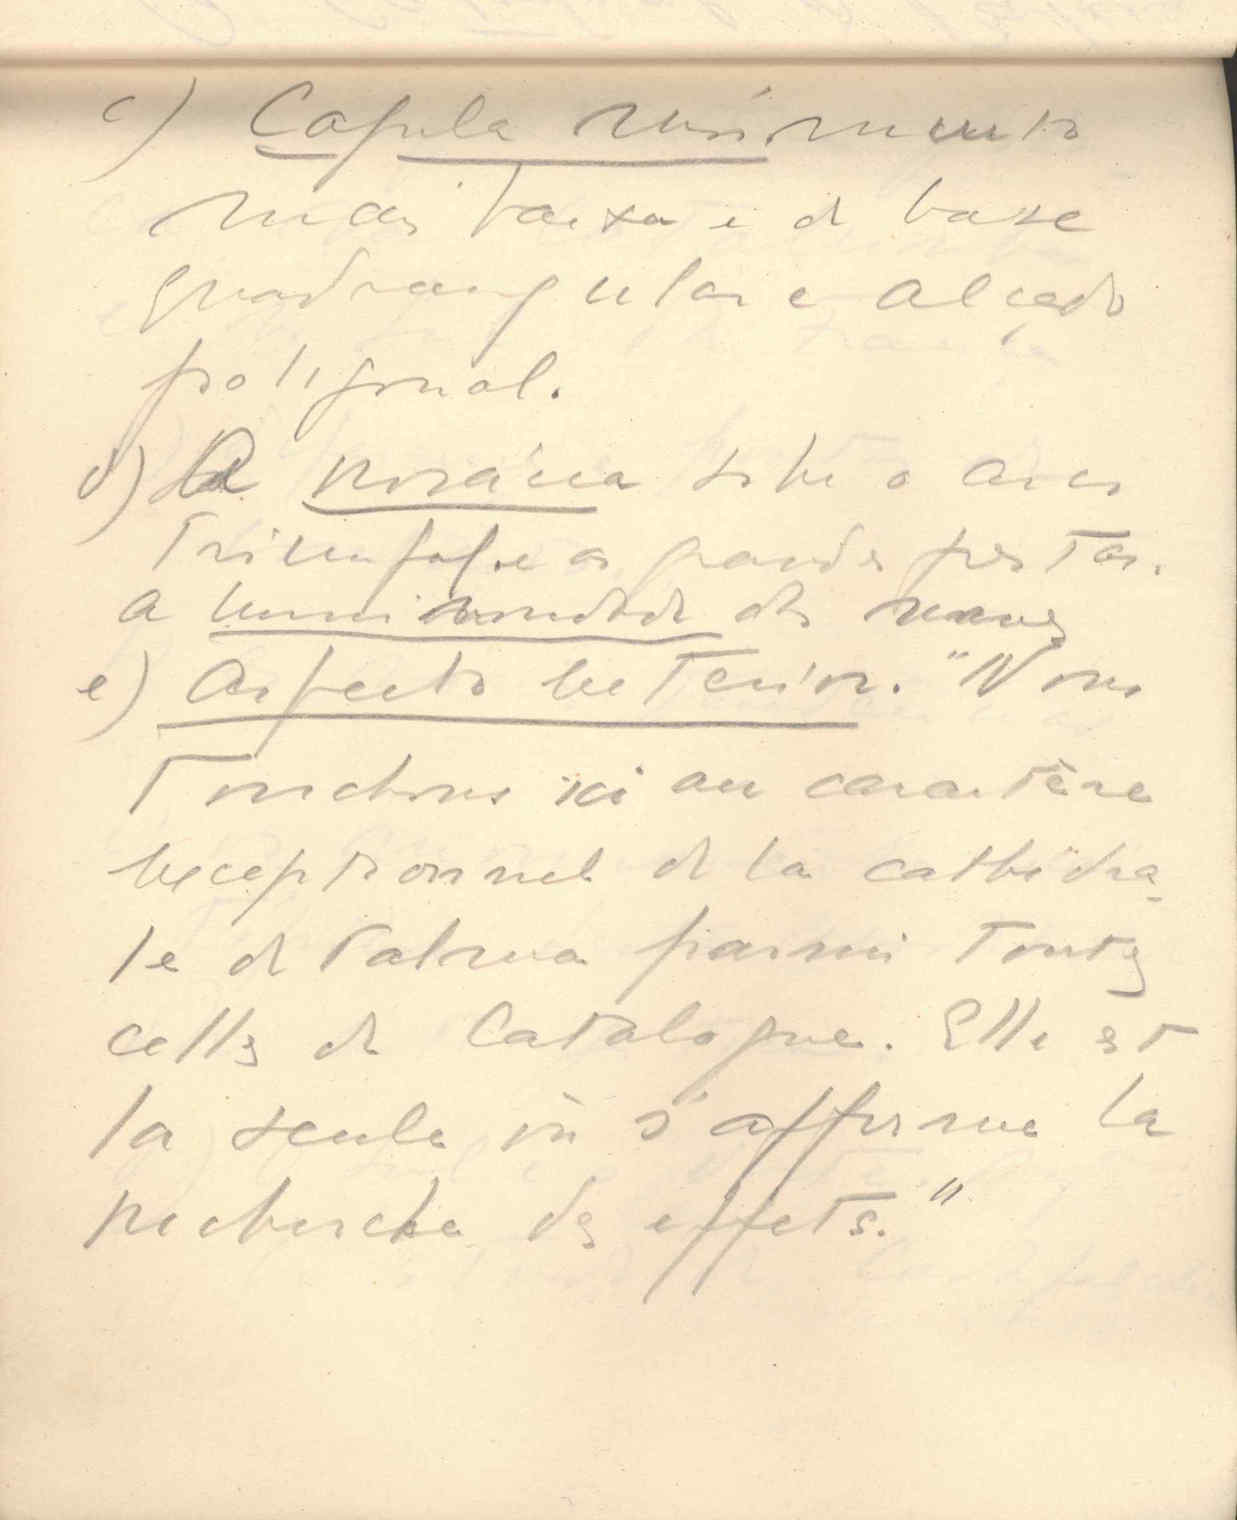 c) Capela mór. muito
mais baixa e de base
quadrangular e alçado
poligonal.
d) A rosácea sobre o arco
triunfal. e as grandes frestas.
a luminosidade das naves
e) Aspecto exterior. "Nous
touchons ici au caractère
exceptionnel de la cathédra-
le de Palma parmi toutes
celles de Catalogne. Elle est
la seule où s'affirme la
recherche des effets."